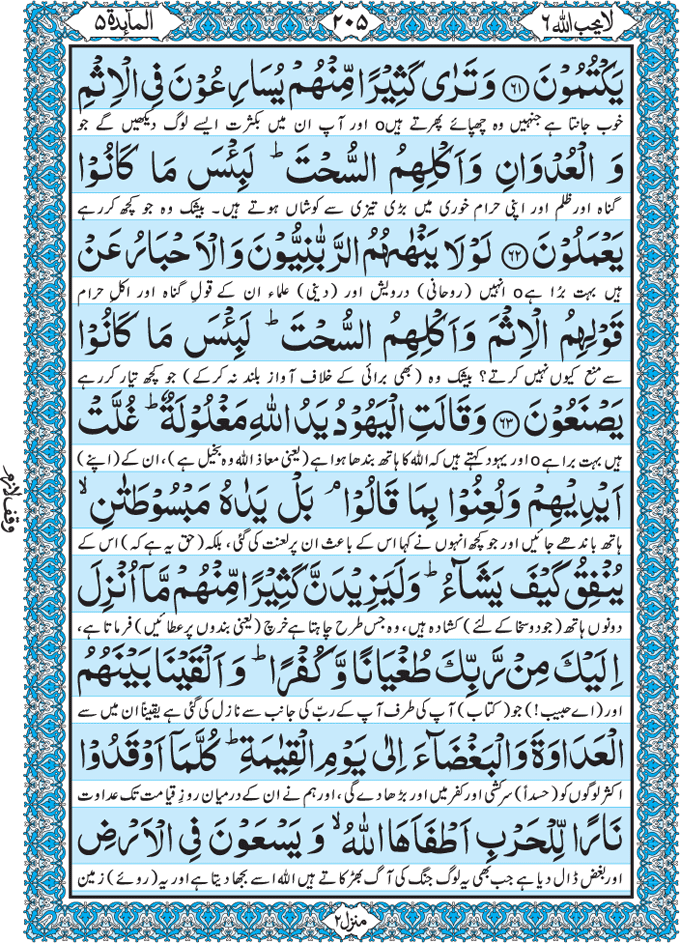 لا يحب الله ٦
٢٠٥
المآئدة ٥
يَكْتُمُوْنَ ﴿٦١﴾ وَ تَرٰى كَثِيْرًا مِّنْهُمْ يُسَارِعُوْنَ فِي الْاِثْمِ
خوب جانتا ہے جنہیں وہ چھپائے پھرتے ہیںo اور آپ ان میں بکثرت ایسے لوگ دیکھیں گے جو
وَ الْعُدْوَانِ وَ اَكْلِهِمُ السُّحْتَ ؕ لَبِئْسَ مَا كَانُوْا
گناہ اور ظلم اور اپنی حرام خوری میں بڑی تیزی سے کوشاں ہوتے ہیں۔ بیشک وہ جو کچھ کررہے
يَعْمَلُوْنَ ﴿٦٢﴾ لَوْ لَا يَنْهٰىهُمُ الرَّبّٰنِيُّوْنَ وَ الْاَحْبَارُ عَنْ
ہیں بہت بڑا ہےo انہیں (روحانی) درویش اور (دینی) علماء ان کے قولِ گناہ اور اکلِ حرام
قَوْلِهِمُ الْاِثْمَ وَ اَكْلِهِمُ السُّحْتَ ؕ لَبِئْسَ مَا كَانُوْا
سے منع کیوں نہیں کرتے؟ بیشک وہ (بھی برائی کے خلاف آواز بلند نہ کر کے) جو کچھ تیار کررہے
يَصْنَعُوْنَ ﴿٦٣﴾ وَ قَالَتِ الْيَهُوْدُ يَدُ اللّٰهِ مَغْلُوْلَةٌ ؕ غُلَّتْ
ہیں بہت برا ہےo اور یہود کہتے ہیں کہ اللہ کا ہاتھ بندھا ہوا ہے (یعنی معاذ اللہ وہ بخیل ہے)، ان کے (اپنے)
اَيْدِيْهِمْ وَ لُعِنُوْا بِمَا قَالُوْا ۘ بَلْ يَدٰهُ مَبْسُوْطَتٰنِ ۙ
ہاتھ باندھے جائیں اور جو کچھ انہوں نے کہا اس کے باعث ان پر لعنت کی گئی، بلکہ (حق یہ ہے کہ) اس کے
وقف لازم
يُنْفِقُ كَيْفَ يَشَآءُ ؕ وَ لَيَزِيْدَنَّ كَثِيْرًا مِّنْهُمْ مَّاۤ اُنْزِلَ
دونوں ہاتھ (جود و سخا کے لئے) کشادہ ہیں، وہ جس طرح چاہتا ہے خرچ (یعنی بندوں پر عطائیں) فرماتا ہے،
اِلَيْكَ مِنْ رَّبِّكَ طُغْيَانًا وَّ كُفْرًا ؕ وَ اَلْقَيْنَا بَيْنَهُمُ
اور (اے حبیب!) جو (کتاب) آپ کی طرف آپ کے ربّ کی جانب سے نازل کی گئی ہے یقیناً ان میں سے
الْعَدَاوَةَ وَ الْبَغْضَآءَ اِلٰى يَوْمِ الْقِيٰمَةِ ؕ كُلَّمَاۤ اَوْقَدُوْا
اکثر لوگوں کو (حسداً) سرکشی اور کفر میں اور بڑھا دے گی، اور ہم نے ان کے درمیان روزِ قیامت تک عداوت
نَارًا لِّلْحَرْبِ اَطْفَاَهَا اللّٰهُ ۙ وَ يَسْعَوْنَ فِي الْاَرْضِ
اور بغض ڈال دیا ہے جب بھی یہ لوگ جنگ کی آگ بھڑکاتے ہیں اللہ اسے بجھا دیتا ہے اور یہ (روئے) زمین
منزل ٢